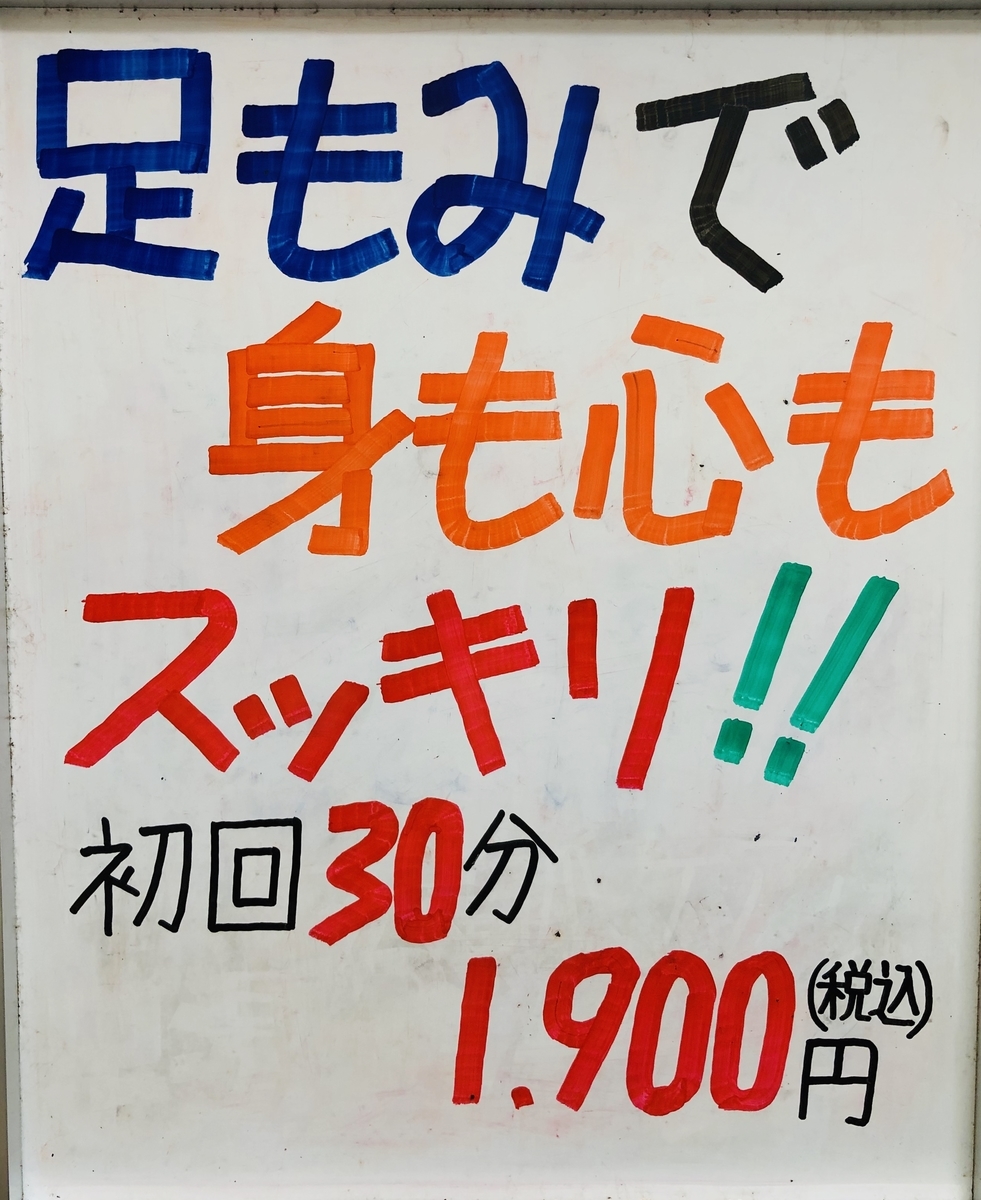 足もみで
身も心も
スッキリ!!
初回30分
1.900円(税込)